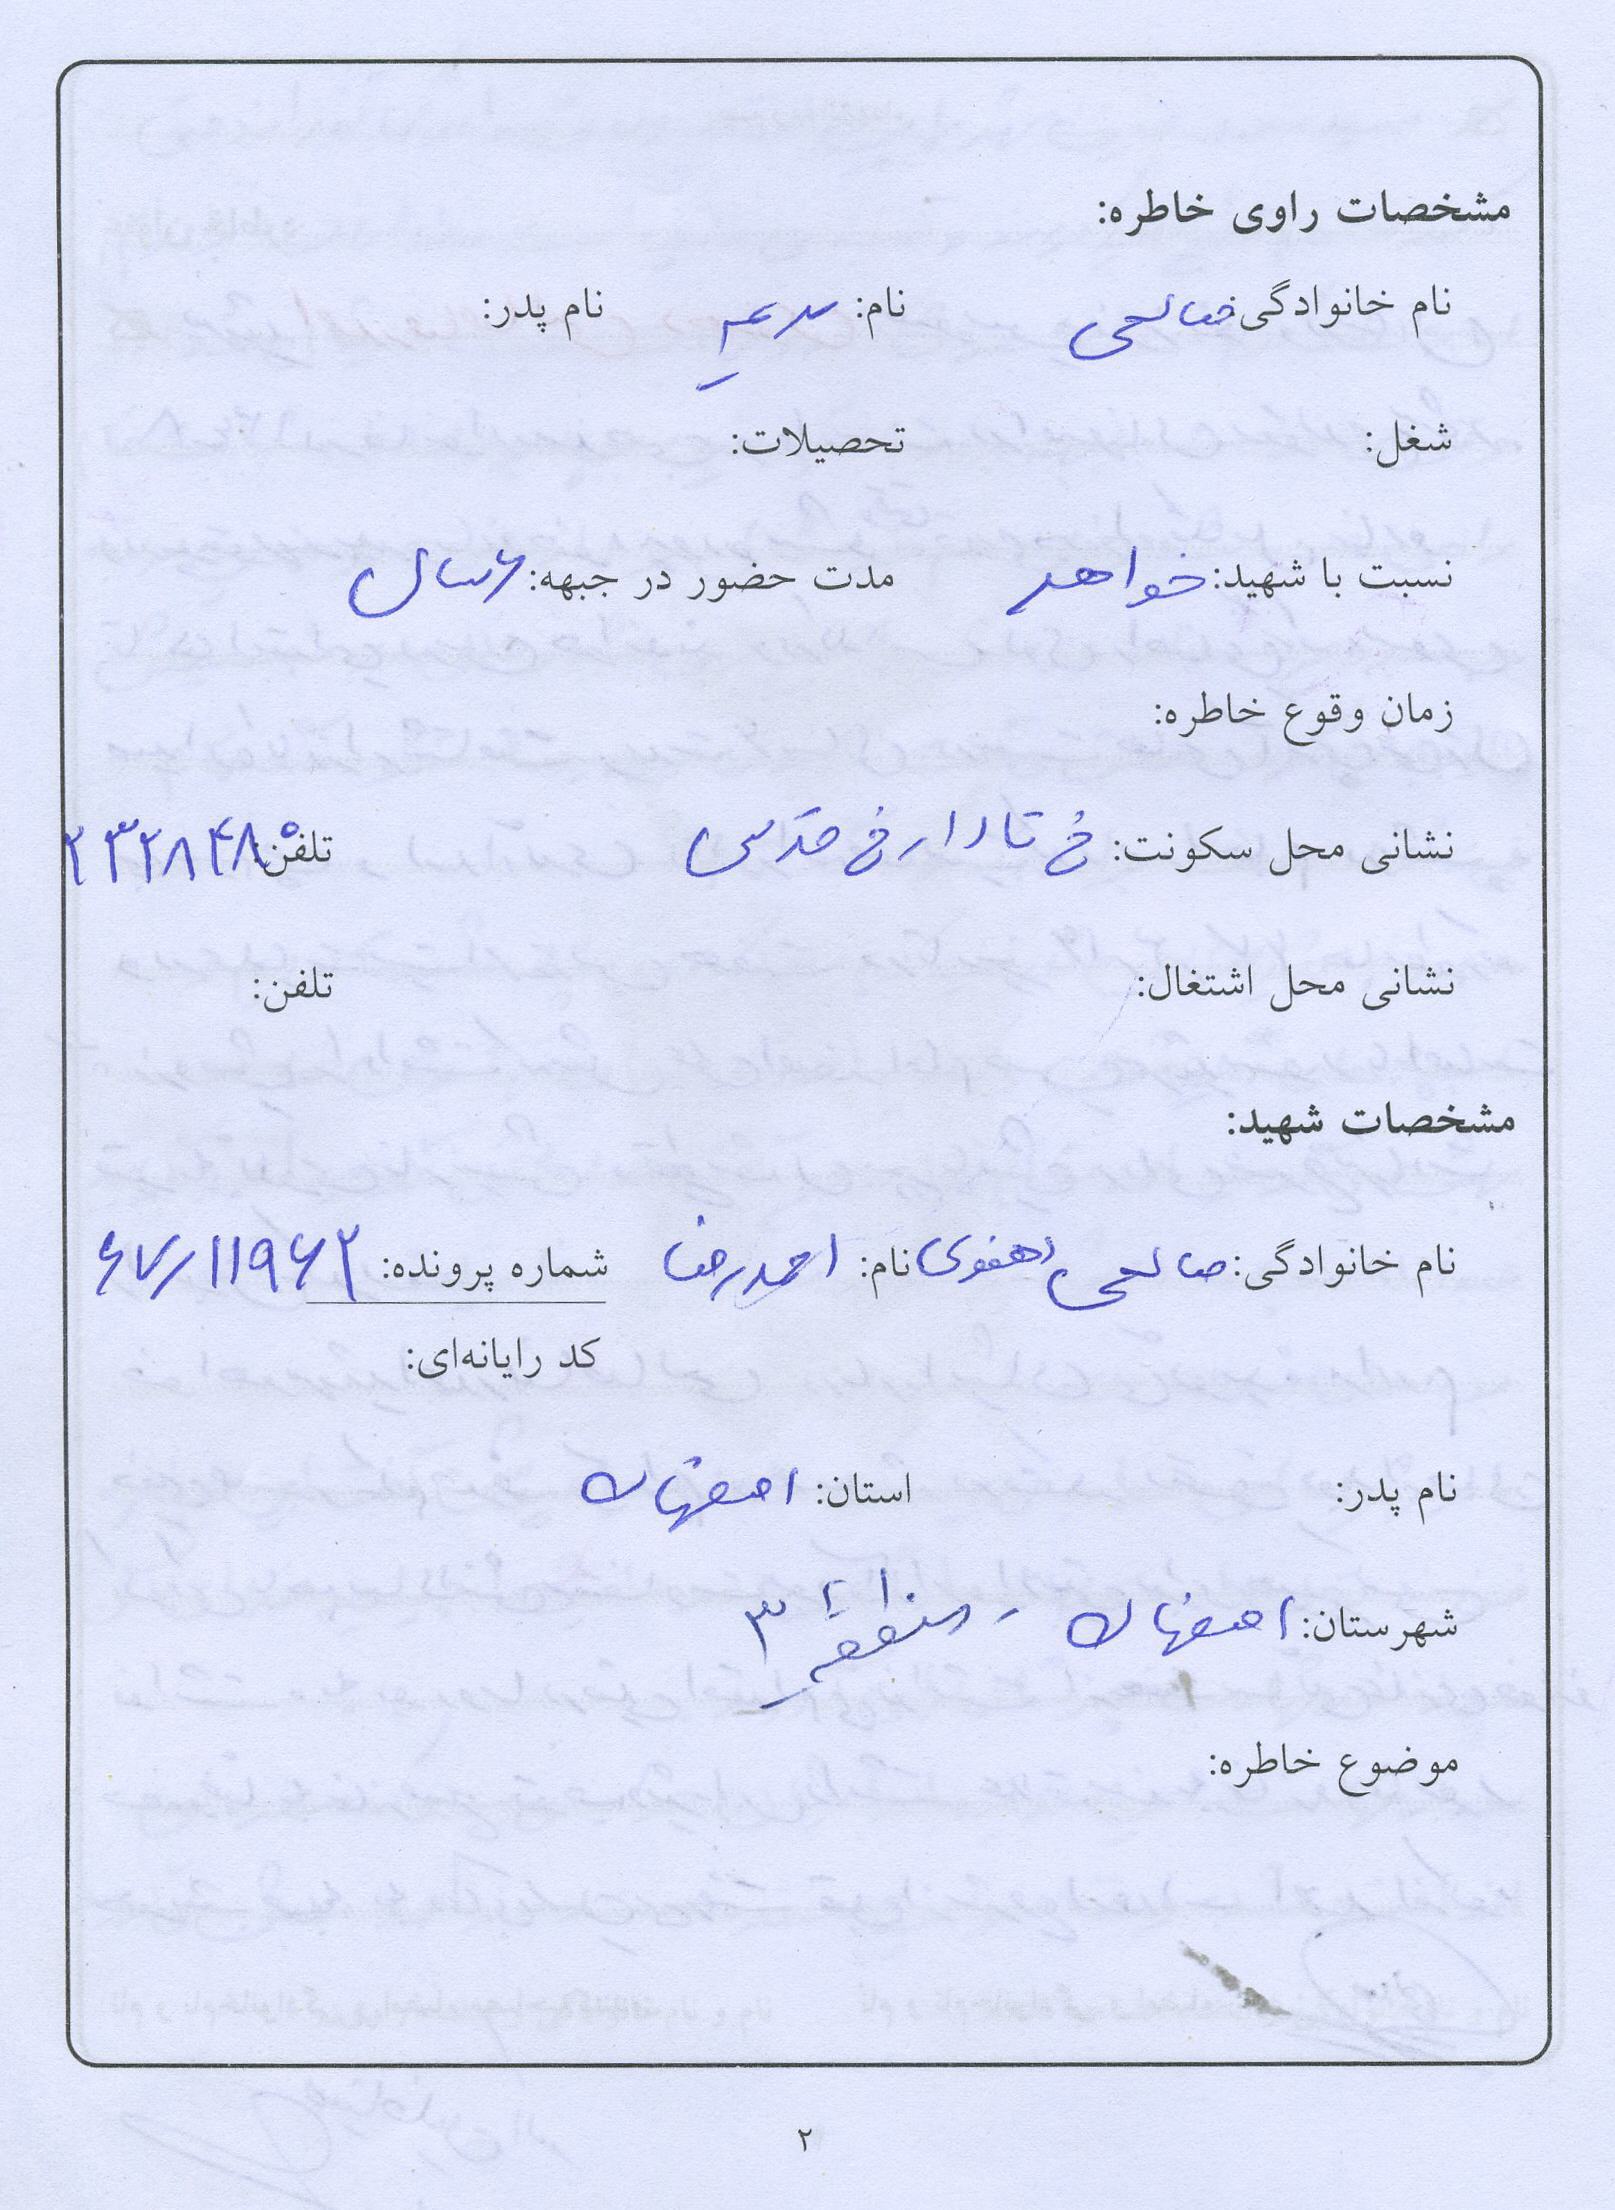 مشخصات راوی خاطره:
نام خانوادگی: صالحی نام: مریم نام پدر:
شغل: تحصیلات:
نسبت با شهید: خواهر مدت حضور در جبهه: ۶ سال
زمان وقوع خاطره:
نشانی محل سکونت: خ تالار خ قدس تلفن: ۲۳۲۸۴۸۰
نشانی محل اشتغال: تلفن:
مشخصات شهید:
نام خانوادگی: صالحی دهنوی نام: احمدرضا شماره پرونده: ۶۷/۱۱۹۶۲
کد رایانه‌ای:
نام پدر: استان: اصفهان
شهرستان: اصفهان - منطقه ۳
موضوع خاطره:
۲